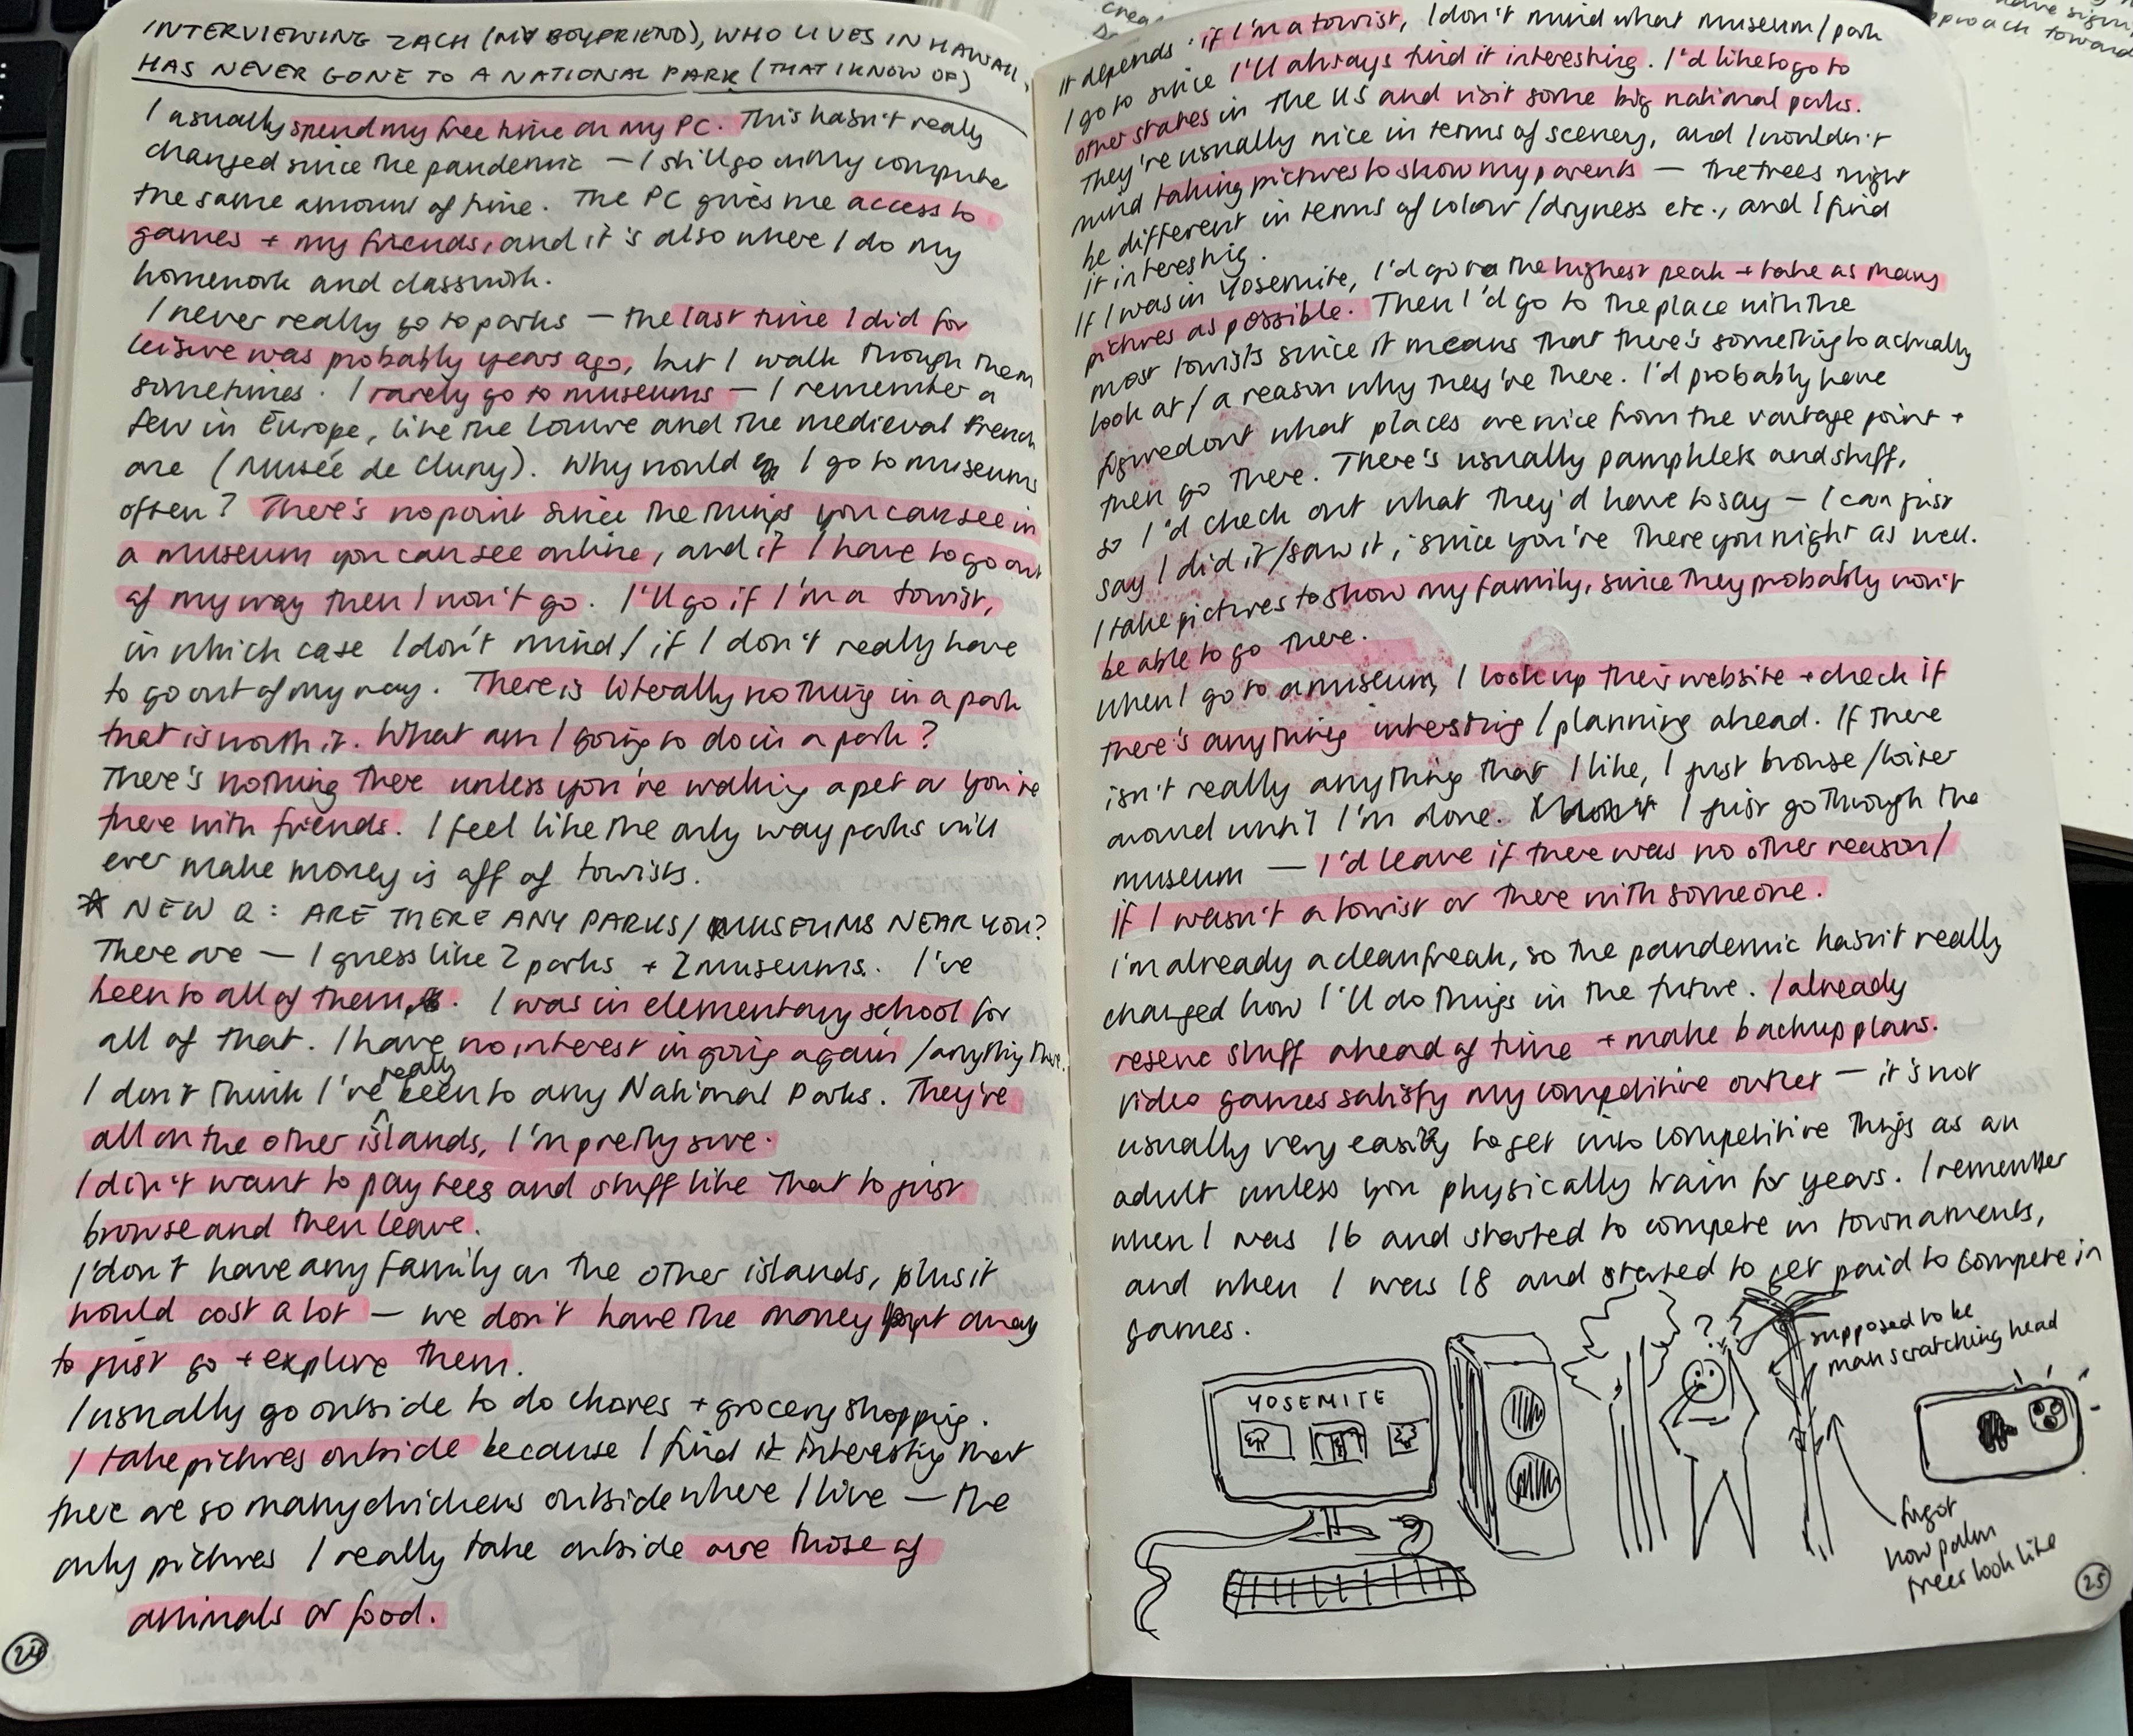 INTERVIEWING ZACH (MY BOYFRIEND), WHO LIVES IN HAWAII,
HAS NEVER GONE TO A NATIONAL PARK (THAT I KNOW OF)
I usually spend my free time on my PC. This hasn't really
changed since the pandemic — I still go on my computer
the same amount of time. The PC gives me access to
games + my friends, and it's also where I do my
homework and classwork.
I never really go to parks — the last time I did for
leisure was probably years ago, but I walk through them
sometimes. I rarely go to museums — I remember a
few in Europe, like the Louvre and the medieval French
one (Musée de Cluny). Why would I go to museums
often? There's no point since the things you can see in
a museum you can see online, and if I have to go out
of my way then I won't go. I'll go if I'm a tourist,
in which case I don't mind / if I don't really have
to go out of my way. There is literally nothing in a park
that is worth it. What am I going to do in a park?
There's nothing there unless you're walking a pet or you're
there with friends. I feel like the only way parks will
ever make money is off of tourists.
* NEW Q: ARE THERE ANY PARKS/MUSEUMS NEAR YOU?
There are — I guess like 2 parks + 2 museums. I've
been to all of them. I was in elementary school for
all of that. I have no interest in going again / anything there.
I don't think I've really been to any National Parks. They're
all on the other islands, I'm pretty sure.
I don't want to pay fees and stuff like that to just
browse and then leave.
I don't have any family on the other islands, plus it
would cost a lot — we don't have the money put away
to just go + explore them.
I usually go outside to do chores + grocery shopping.
I take pictures outside because I find it interesting that
there are so many chickens outside where I live — the
only pictures I really take outside are those of
animals or food.
24
It depends: if I'm a tourist, I don't mind what museum/park
I go to since I'll always find it interesting. I'd like to go to
other states in the US and visit some big national parks.
They're usually nice in terms of scenery, and I wouldn't
mind taking pictures to show my parents — the trees might
be different in terms of colour/dryness etc., and I find
it interesting.
If I was in Yosemite, I'd go to the highest peak + take as many
pictures as possible. Then I'd go to the place with the
most tourists since it means that there's something to actually
look at / a reason why they're there. I'd probably have
figured out what places are nice from the vantage point +
then go there. There's usually pamphlets and stuff,
so I'd check out what they'd have to say — I can just
say I did it/saw it, since you're there you might as well.
I take pictures to show my family, since they probably won't
be able to go there.
When I go to a museum, I look up their website + check if
there's anything interesting / planning ahead. If there
isn't really anything that I like, I just browse/loiter
around until I'm done. I just go through the
museum — I'd leave if there was no other reason/
if I wasn't a tourist or there with someone.
I'm already a clean freak, so the pandemic hasn't really
changed how I'll do things in the future. I already
reserve stuff ahead of time + make backup plans.
Video games satisfy my competitive outlet — it's not
usually very easily to get into competitive things as an
adult unless you physically train for years. I remember
when I was 16 and started to compete in tournaments,
and when I was 18 and started to get paid to compete in
games.
YOSEMITE
??
supposed to be
man scratching head
forgot
how palm
trees look like
25